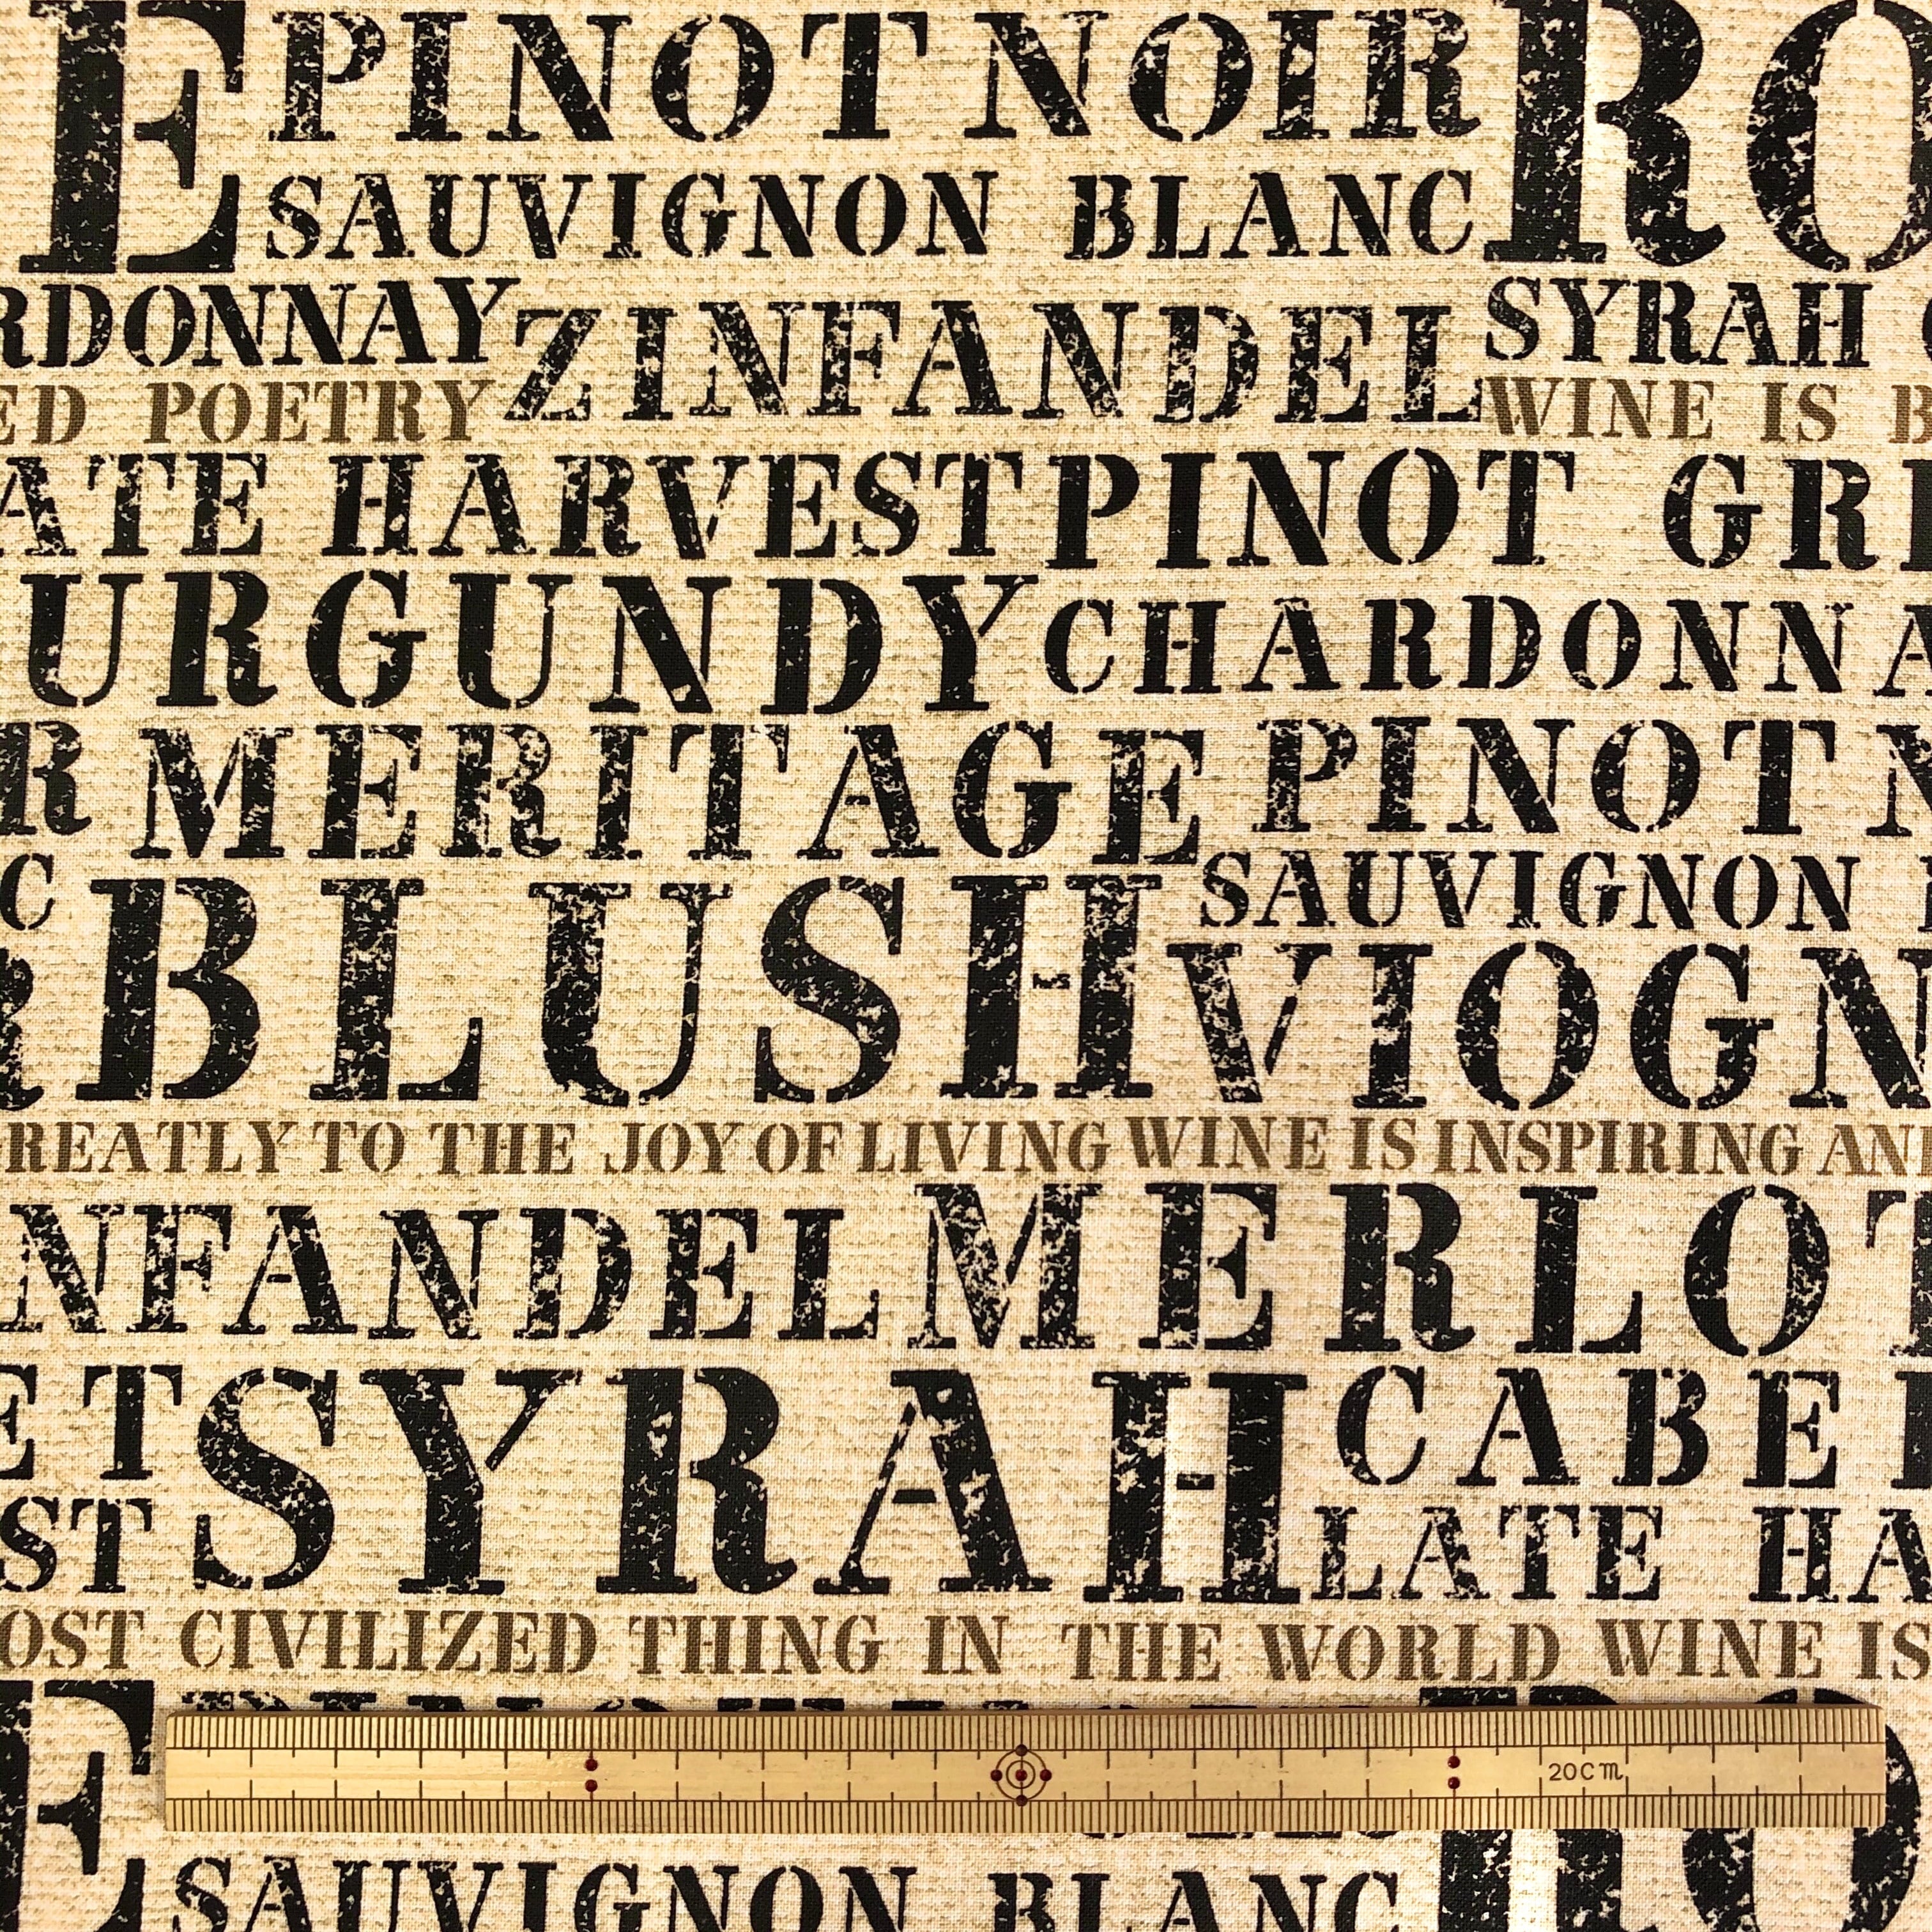 E PINOT NOIR RO
SAUVIGNON BLANC
RDONNAY ZINFANDEL SYRAH
ED POETRY WINE IS B
ATE HARVEST PINOT GRI
URGUNDY CHARDONNA
R MERITAGE PINOT N
C BLUSH SAUVIGNON
R VIOGN
REATLY TO THE JOY OF LIVING WINE IS INSPIRING AN
NFANDEL MERLOT
ET SYRAH CABE
ST LATE HA
OST CIVILIZED THING IN THE WORLD WINE IS
E RO
20cm
SAUVIGNON BLANC